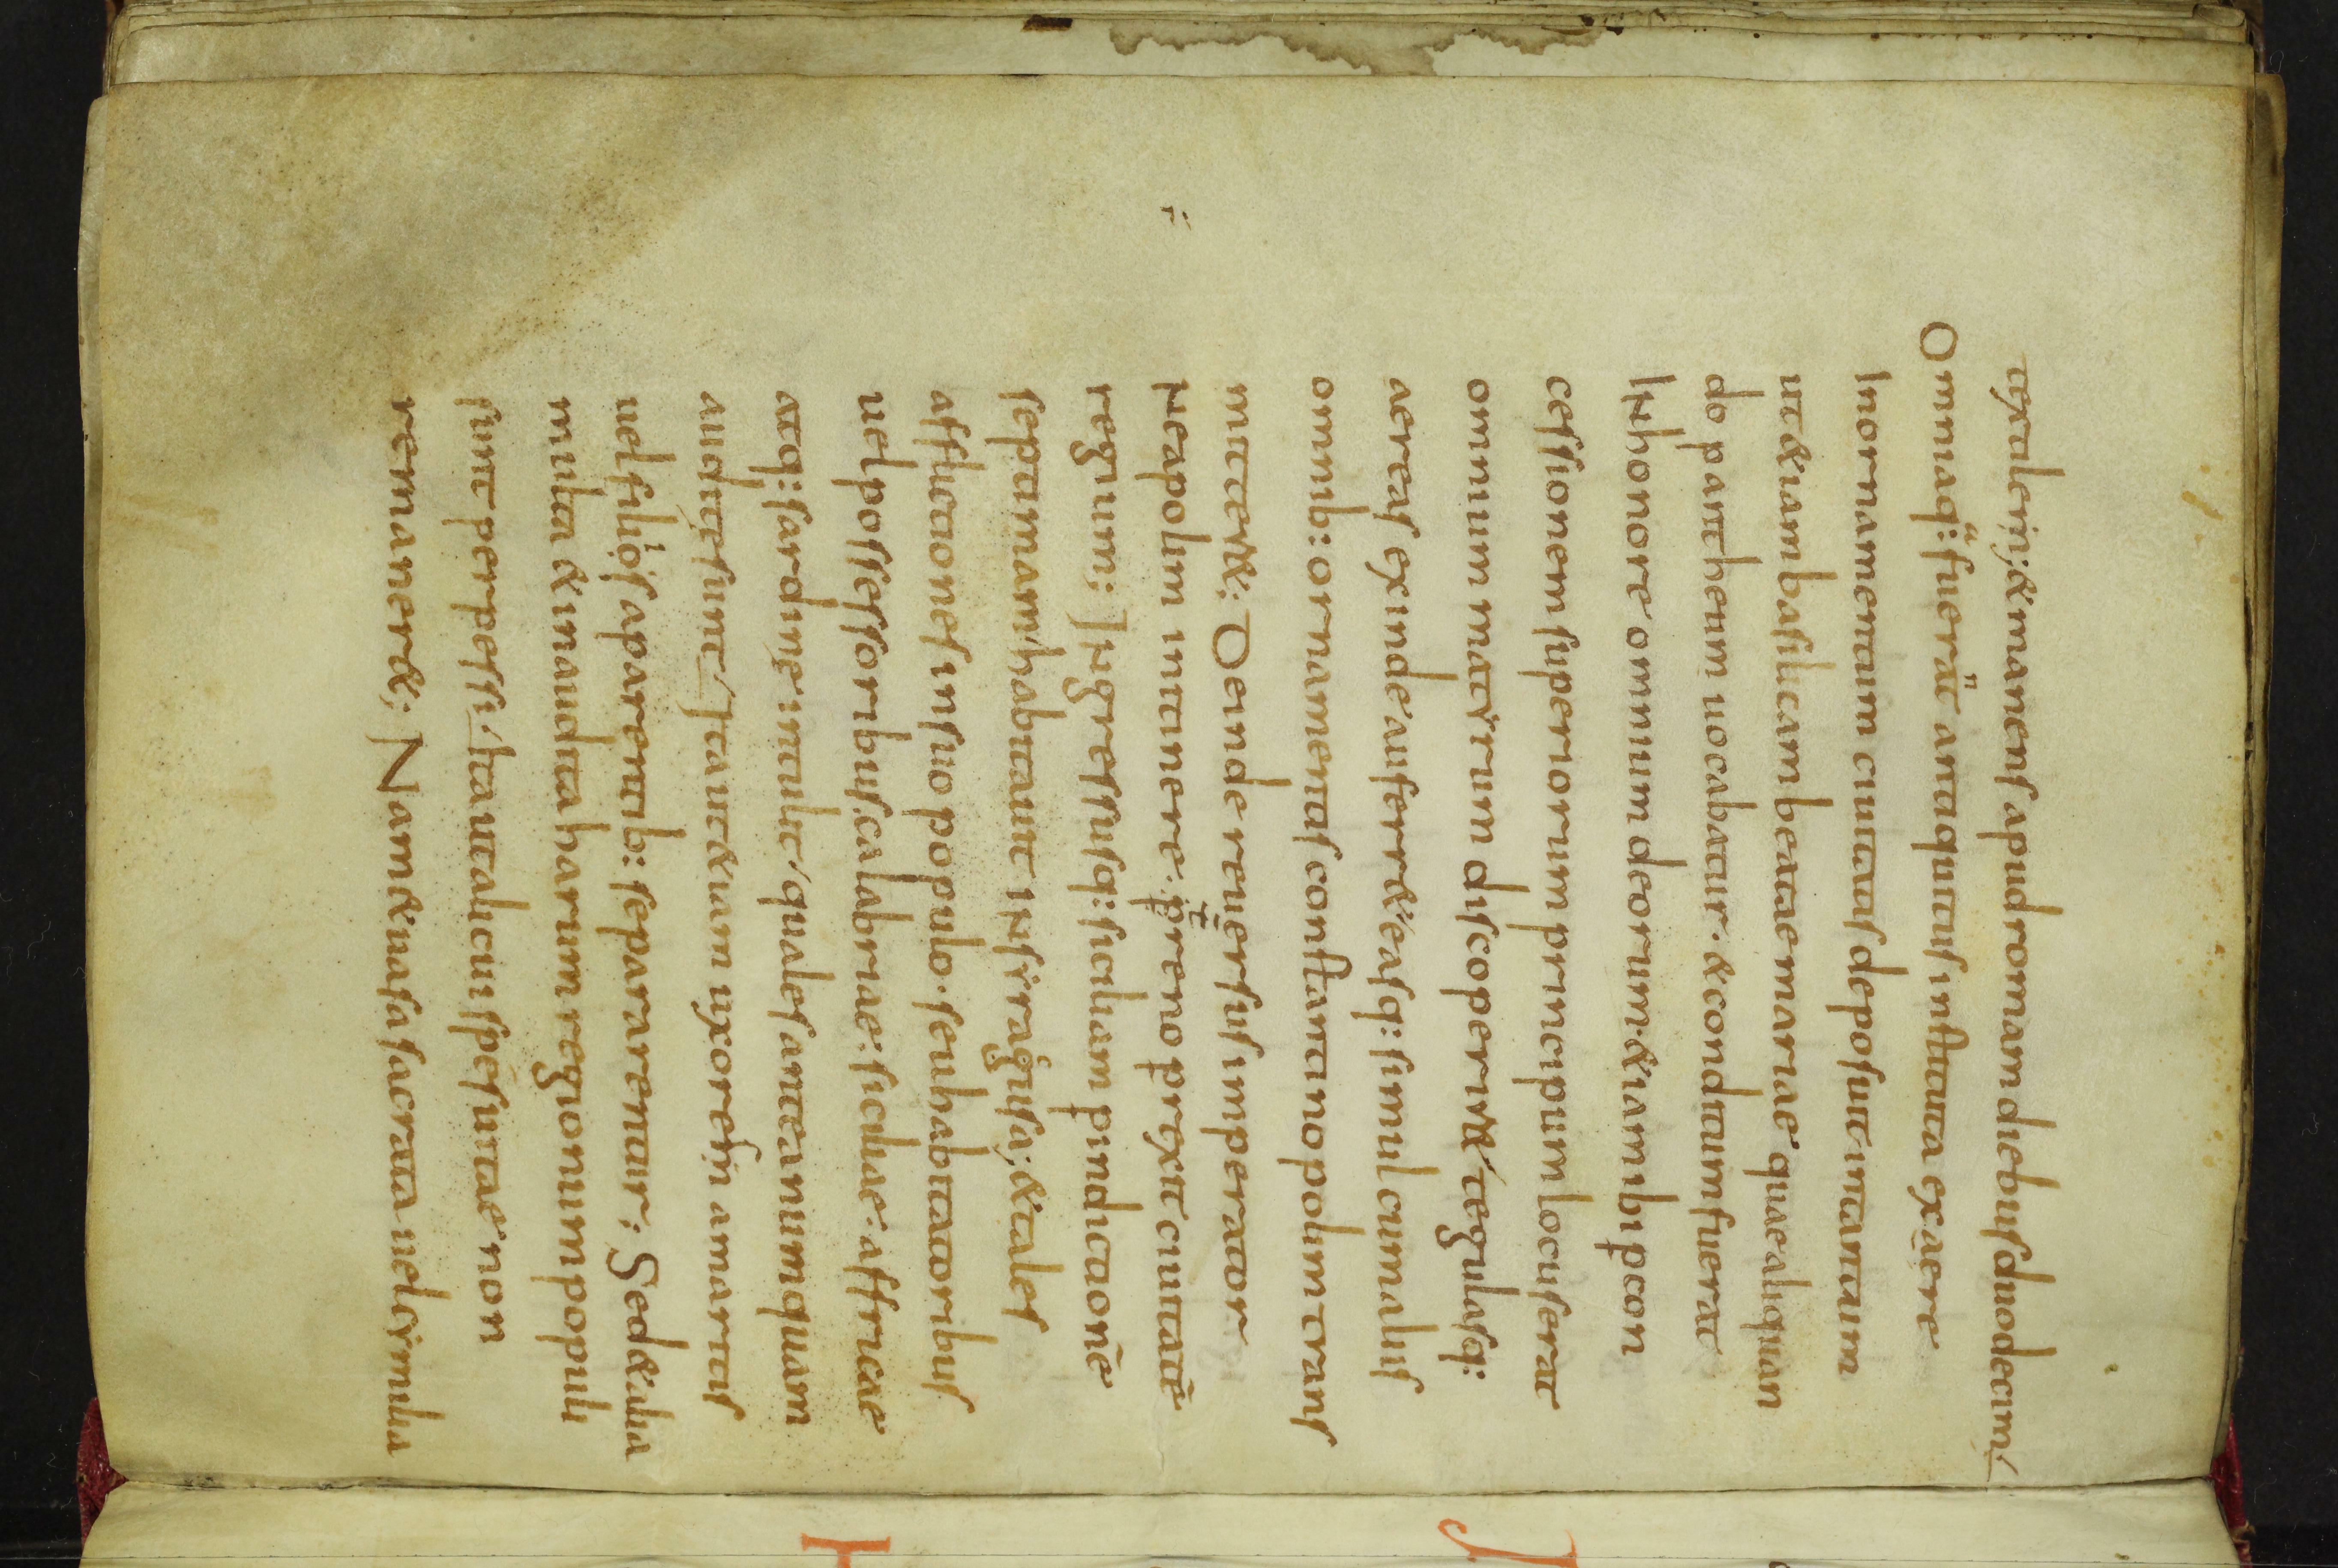 texaler̄; & manens apud romam diebus duodecim
Omniaq: fuerat̄ antiquitus instituta ex aere
Inornamentum ciuitatis deposuit intantum
ut & iam basilicam beatae mariae quae aliquan
do pantheum uocabatur · & conditum fuerat
Inhonore omnium deorum & iam ibi p con
cessionem superiorum principum locus erat
omnium martyrum discoperir& tegulasq:
aereas exinde auferr& easq: simul cum aliis
omnib: ornamentis constantinopolim trans
mitter&: Deinde reuersus imperator
neapolim itinere: p̄reno prexit ciuitatē
regium: Ingressusq: siciliam p indictionē
septimam habitauit insiragusa; & tales
afflictiones insuo populo · seu habitatoribus
uel possessoribus calabriae: siciliae: affricae
atq: sardine intulit quales antea numquam
audite sunt Ita ut & iam uxores a maritis
uel filios a parentib: separarentur: Sed & alia
multa & inaudita harum regionum populi
sunt perpessi Ita ut alicui spes uitae non
remaner&; Nam & uasa sacrata uel cimilia